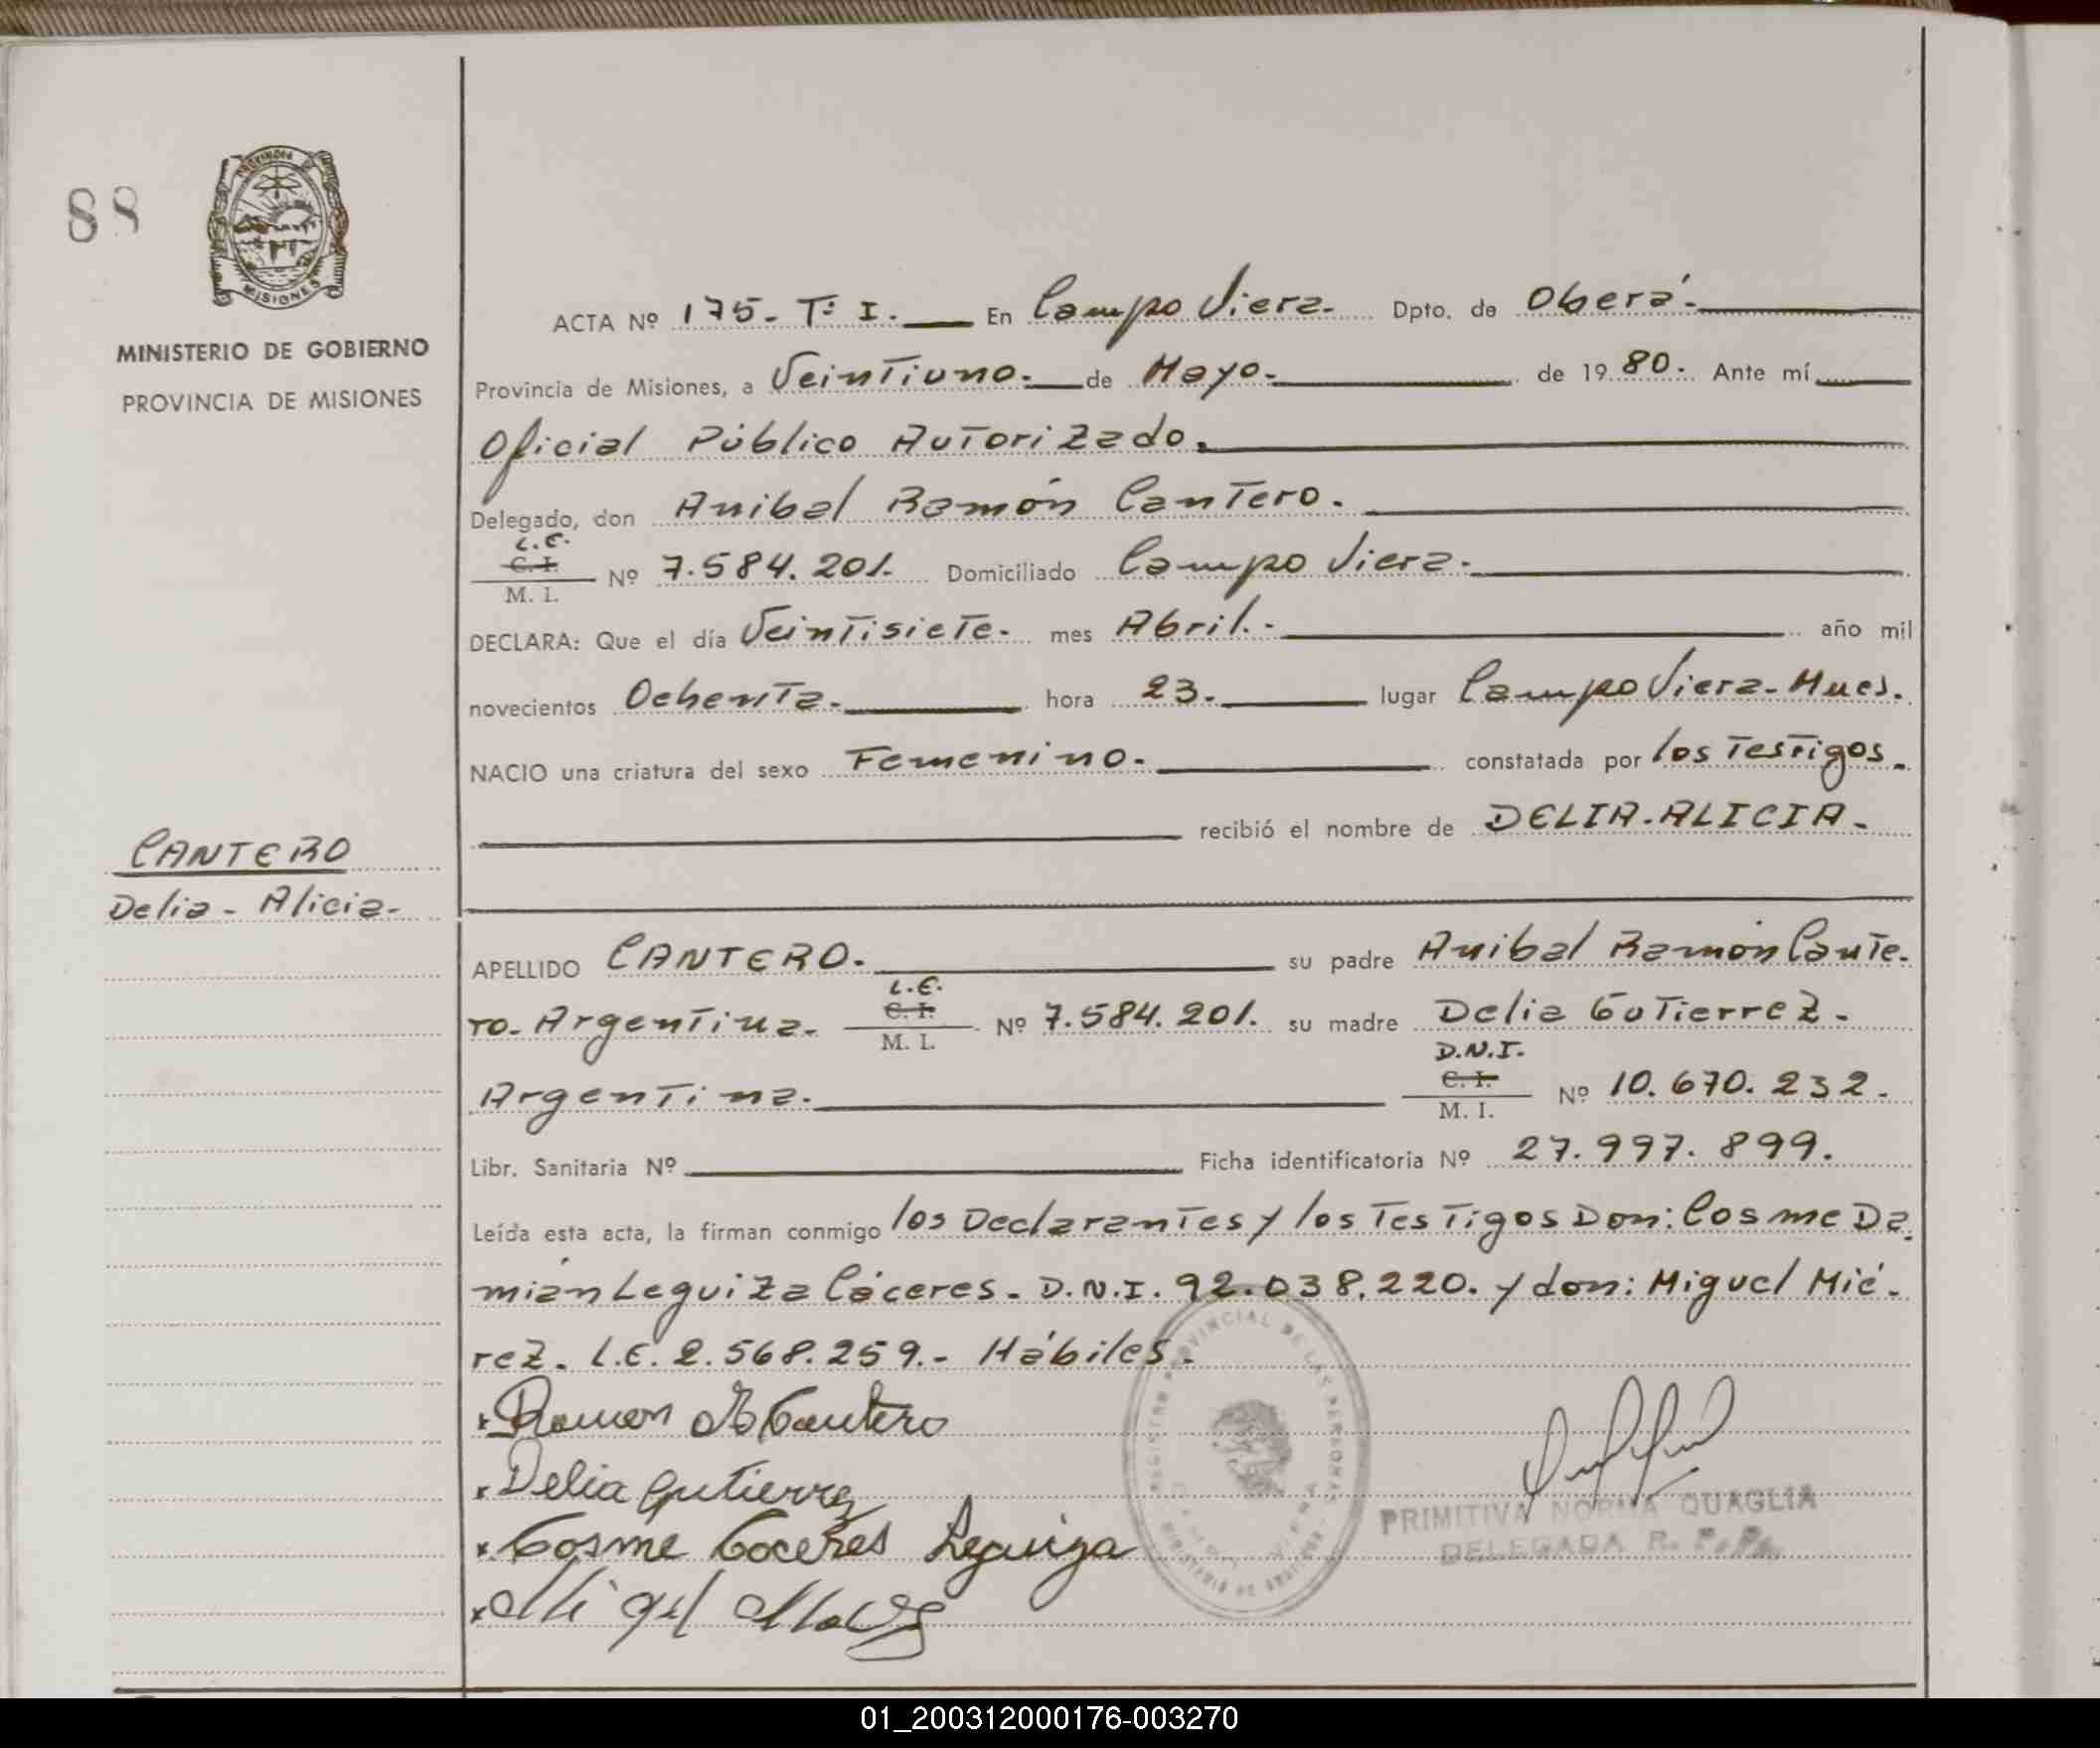 88
PROVINCIA DE
MISIONES
MINISTERIO DE GOBIERNO
PROVINCIA DE MISIONES
ACTA Nº 175.- Tº I. En Campo Viera. Dpto. de Oberá.
Provincia de Misiones, a Veintiuno. de Mayo. de 1980. Ante mí
Oficial Público Autorizado.
Delegado, don Anibal Ramón Cantero.
L.E.
C. I.
M. I.
Nº 7.584.201. Domiciliado Campo Viera.
DECLARA: Que el día Veintisiete. mes Abril.- año mil
novecientos Ochenta. hora 23. lugar Campo Viera-Mnes.
NACIO una criatura del sexo Femenino. constatada por los Testigos.
recibió el nombre de DELIA-ALICIA-
CANTERO
Delia - Alicia-
APELLIDO CANTERO. su padre Anibal Ramón Cante-
ro- Argentina-
L.E.
C. I.
M. I.
Nº 7.584.201. su madre Delia Gutierrez-
Argentina.
D.N.I.
C. I.
M. I.
Nº 10.670.232.
Libr. Sanitaria Nº Ficha identificatoria Nº 27.997.899.
Leída esta acta, la firman conmigo los Declarantes y los Testigos Don: Cosme Da
mián Leguiza Cáceres. D.N.I. 92.038.220. y don: Miguel Mié-
rez. L.E. 2.568.259.- Hábiles.
Ramon A Cantero
Delia Gutierrez
Cosme Coceres Leguiza
REGISTRO PROVINCIAL DE LAS PERSONAS
PRIMITIVA NORMA QUAGLIA
DELEGADA R. P. Ps.
01_200312000176-003270